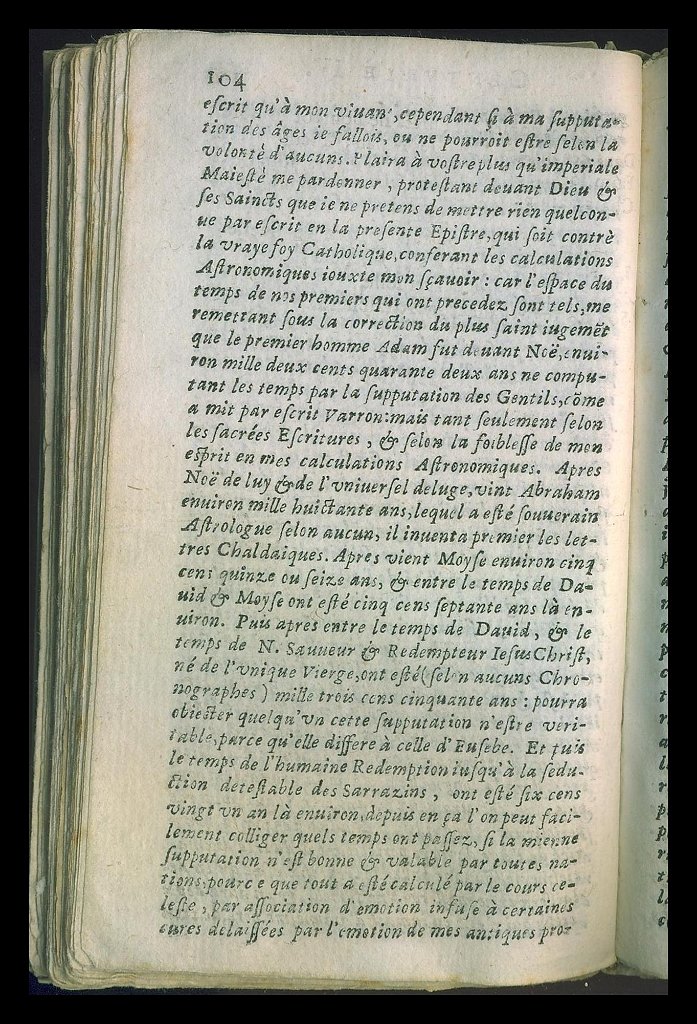 104
escrit qu'à mon viuan', cependant si à ma supputa-
tion des âges ie fallois, ou ne pourroit estre selon la
volontè d'aucuns. Plaira à vostre plus qu'imperiale
Maiestè me pardonner, protestant deuant Dieu &
ses Saincts que ie ne pretens de mettre rien quelcon-
ue par escrit en la presente Epistre, qui soit contrè
la vraye foy Catholique, conferant les calculations
Astronomiques iouxte mon sçauoir : car l'espace du
temps de nos premiers qui ont precedez sont tels, me
remettant sous la correction du plus saint iugemēt
que le premier homme Adam fut deuant Noë, enui-
ron mille deux cents quarante deux ans ne compu-
tant les temps par la supputation des Gentils, cōme
a mit par escrit Varron: mais tant seulement selon
les sacrées Escritures, & selon la foiblesse de mon
esprit en mes calculations Astronomiques. Apres
Noë de luy & de l'vniuersel deluge, vint Abraham
enuiron mille huictante ans, lequel a esté souuerain
Astrologue selon aucuns, il inuenta premier les let-
tres Chaldaiques. Apres vient Moyse enuiron cinq
cens quinze ou seize ans, & entre le temps de Da-
uid & Moyse ont esté cinq cens septante ans là en-
uiron. Puis apres entre le temps de Dauid, & le
temps de N. Sauueur & Redempteur Iesus Christ,
né de l'vnique Vierge, ont esté (selon aucuns Chro-
nographes) mille trois cens cinquante ans : pourra
obiecter quelqu'vn cette supputation n'estre veri-
table, parce qu'elle differe à celle d'Eusebe. Et puis
le temps de l'humaine Redemption iusqu'à la sedu-
ction detestable des Sarrazins, ont esté six cens
vingt vn an là enuiron, depuis en ça l'on peut faci-
lement colliger quels temps ont passez, si la mienne
supputation n'est bonne & valable par toutes na-
tions, pource que tout a esté calculé par le cours ce-
leste, par association d'emotion infuse à certaines
eures delaissées par l'emotion de mes antiques pro-